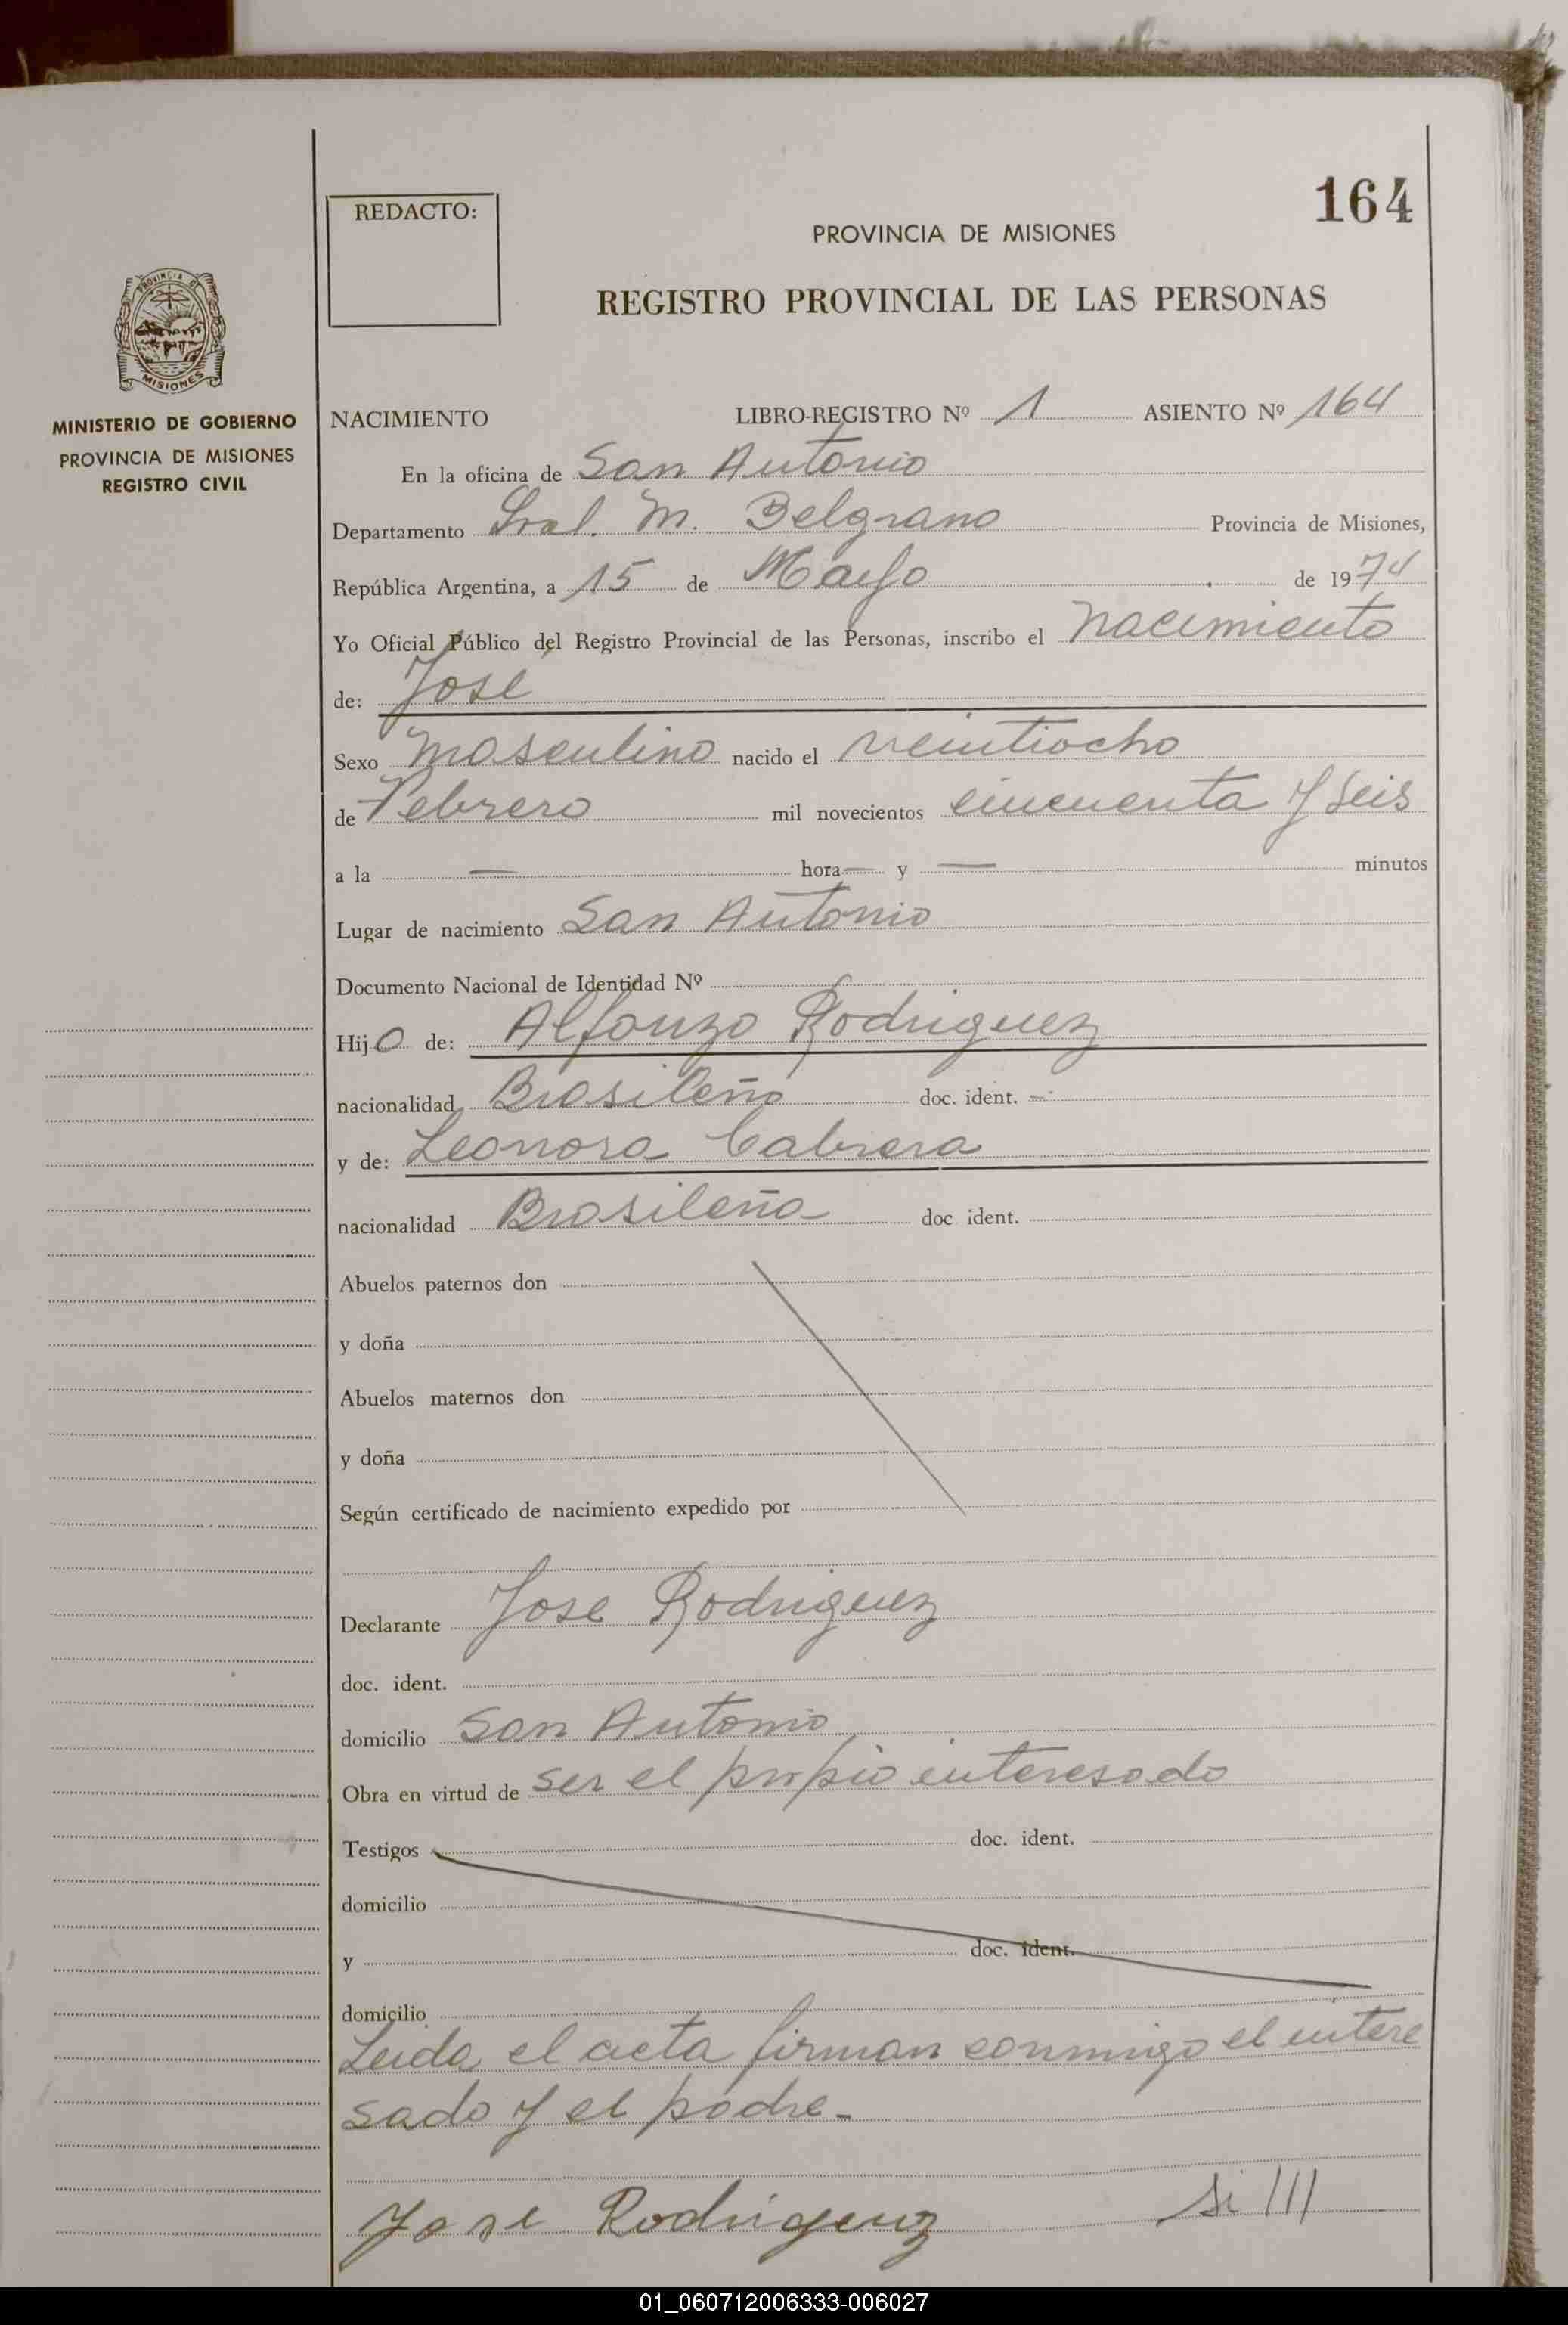 164
REDACTO:
PROVINCIA DE MISIONES
REGISTRO PROVINCIAL DE LAS PERSONAS
PROVINCIA DE
MISIONES
MINISTERIO DE GOBIERNO
PROVINCIA DE MISIONES
REGISTRO CIVIL
NACIMIENTO LIBRO-REGISTRO Nº 1 ASIENTO Nº 164
En la oficina de San Antonio
Departamento Gral. M. Belgrano Provincia de Misiones,
República Argentina, a 15 de Mayo de 1974
Yo Oficial Público del Registro Provincial de las Personas, inscribo el nacimiento
de: José
Sexo masculino nacido el veintiocho
de Febrero mil novecientos cincuenta y seis
a la — hora — y — minutos
Lugar de nacimiento San Antonio
Documento Nacional de Identidad Nº
Hijo de: Alfonzo Rodriguez
nacionalidad Brasileño doc. ident. —
y de: Leonora Cabrera
nacionalidad Brasileña doc ident.
Abuelos paternos don
y doña
Abuelos maternos don
y doña
Según certificado de nacimiento expedido por
Declarante Jose Rodriguez
doc. ident.
domicilio San Antonio
Obra en virtud de ser el propio interesado
Testigos doc. ident.
domicilio
y doc. ident.
domicilio
Leida el acta firman conmigo el intere
sado y el padre-
Jose Rodrigenz
01_060712006333-006027